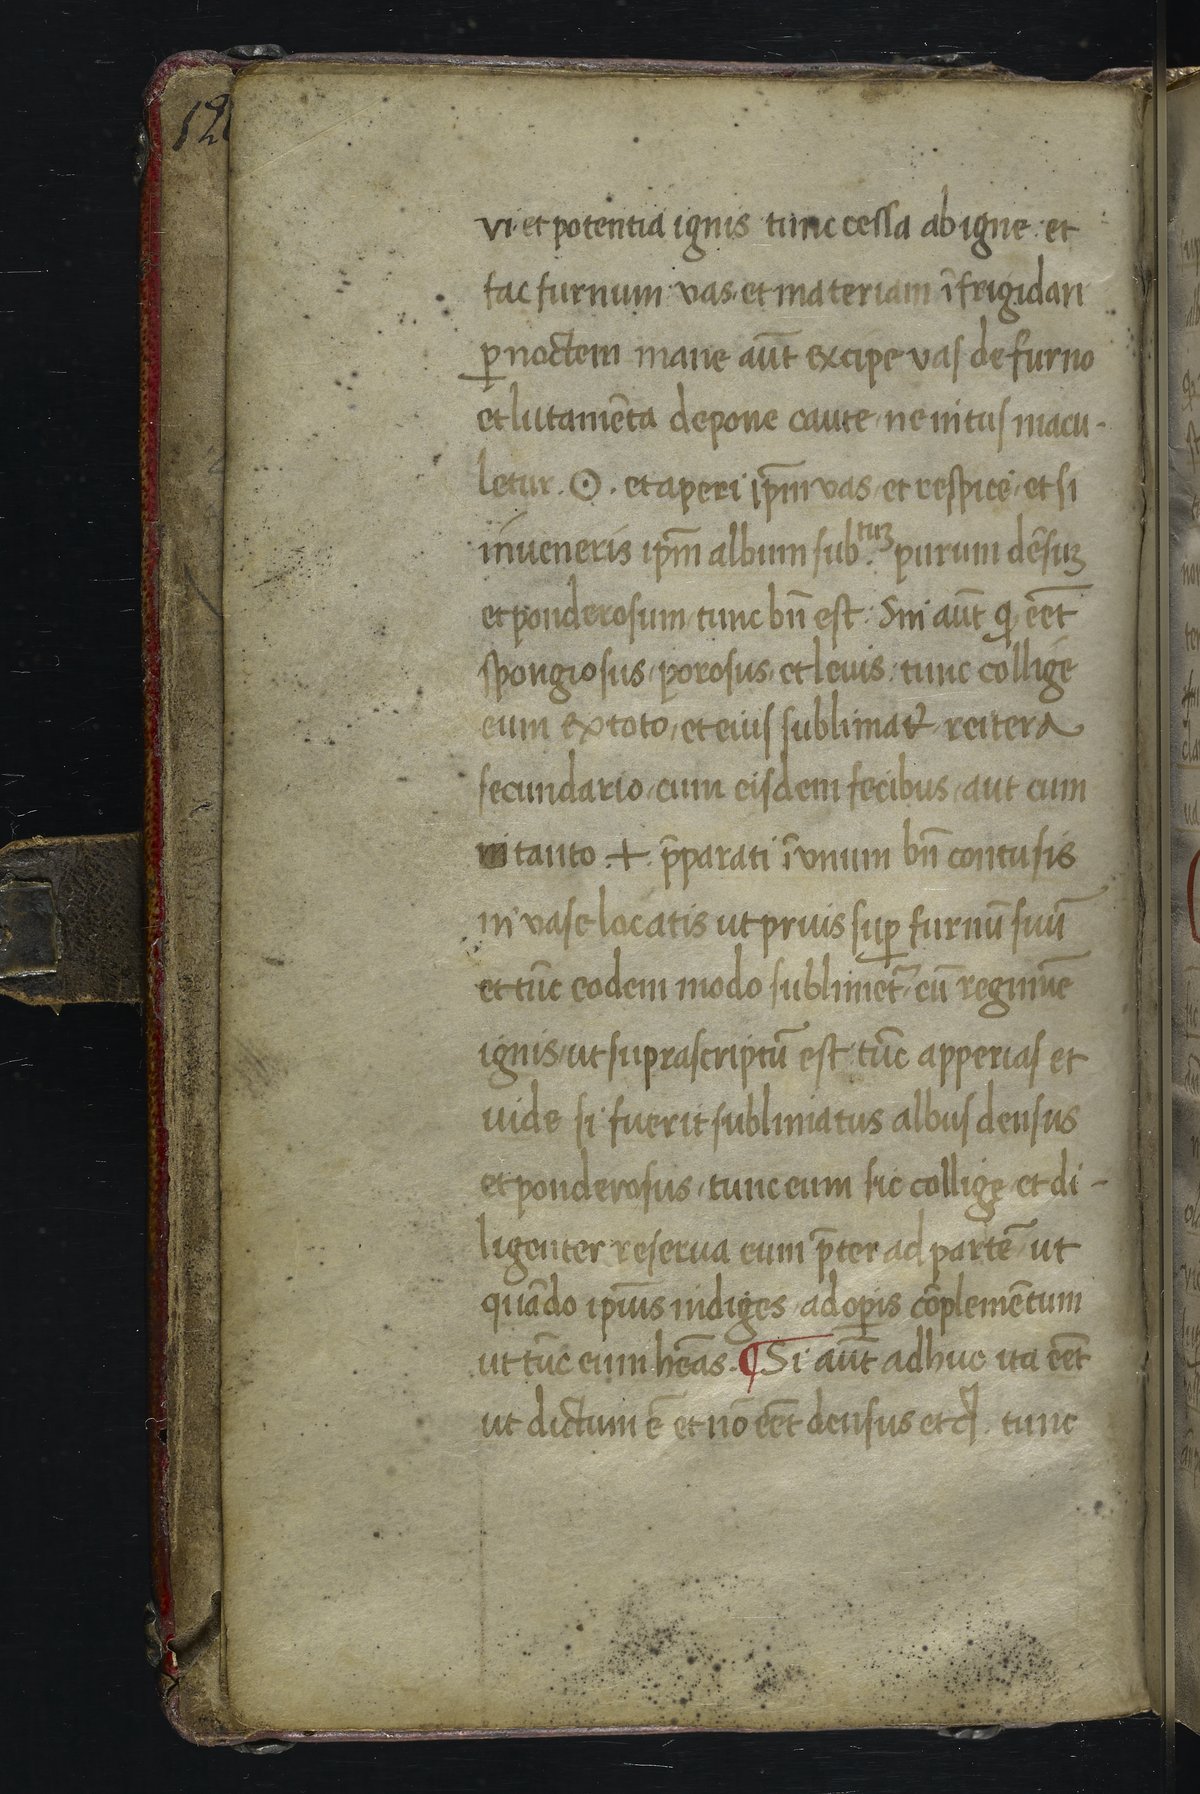 vi et potentia ignis tunc cessa ab igne et
fac furnum vas et materiam ĩfrigidari
p̱ noctem mane aut̃ excipe vas de furno
et lutamẽta depone caute ne intus macu-
letur . ☉ . et aperi ip̃m vas et respice et si
inueneris ip̃m album sub.tuꝫ purum dẽsuꝫ
et ponderosum tunc bñ est . Sin aut̃ ꝙ eẽt
spongiosus porosus et leuis . tunc collige
eum ex toto, et eius sublimat reitera
secundario cum eisdem fecibus aut cum
tanto .+. p̃parati ĩ vnum bñ contusis
in vase locatis ut prius suꝑ furnũ suũ
et tũc eodem modo sublimet̃ cũ regimĩe
ignis ut suprascriptũ est tũc apperias et
uide si fuerit sublimatus albus densus
et ponderosus tunc eum sic collige et di-
ligenter reserua eum p̃ter ad partẽ ut
quãdo ip̃ius indiges ad oꝑis cõplemẽtum
ut tũc eum hẽas. ¶ Si aut̃ adhuc ita eẽt
ut dictum ẽ et nõ eẽt densus et . tunc